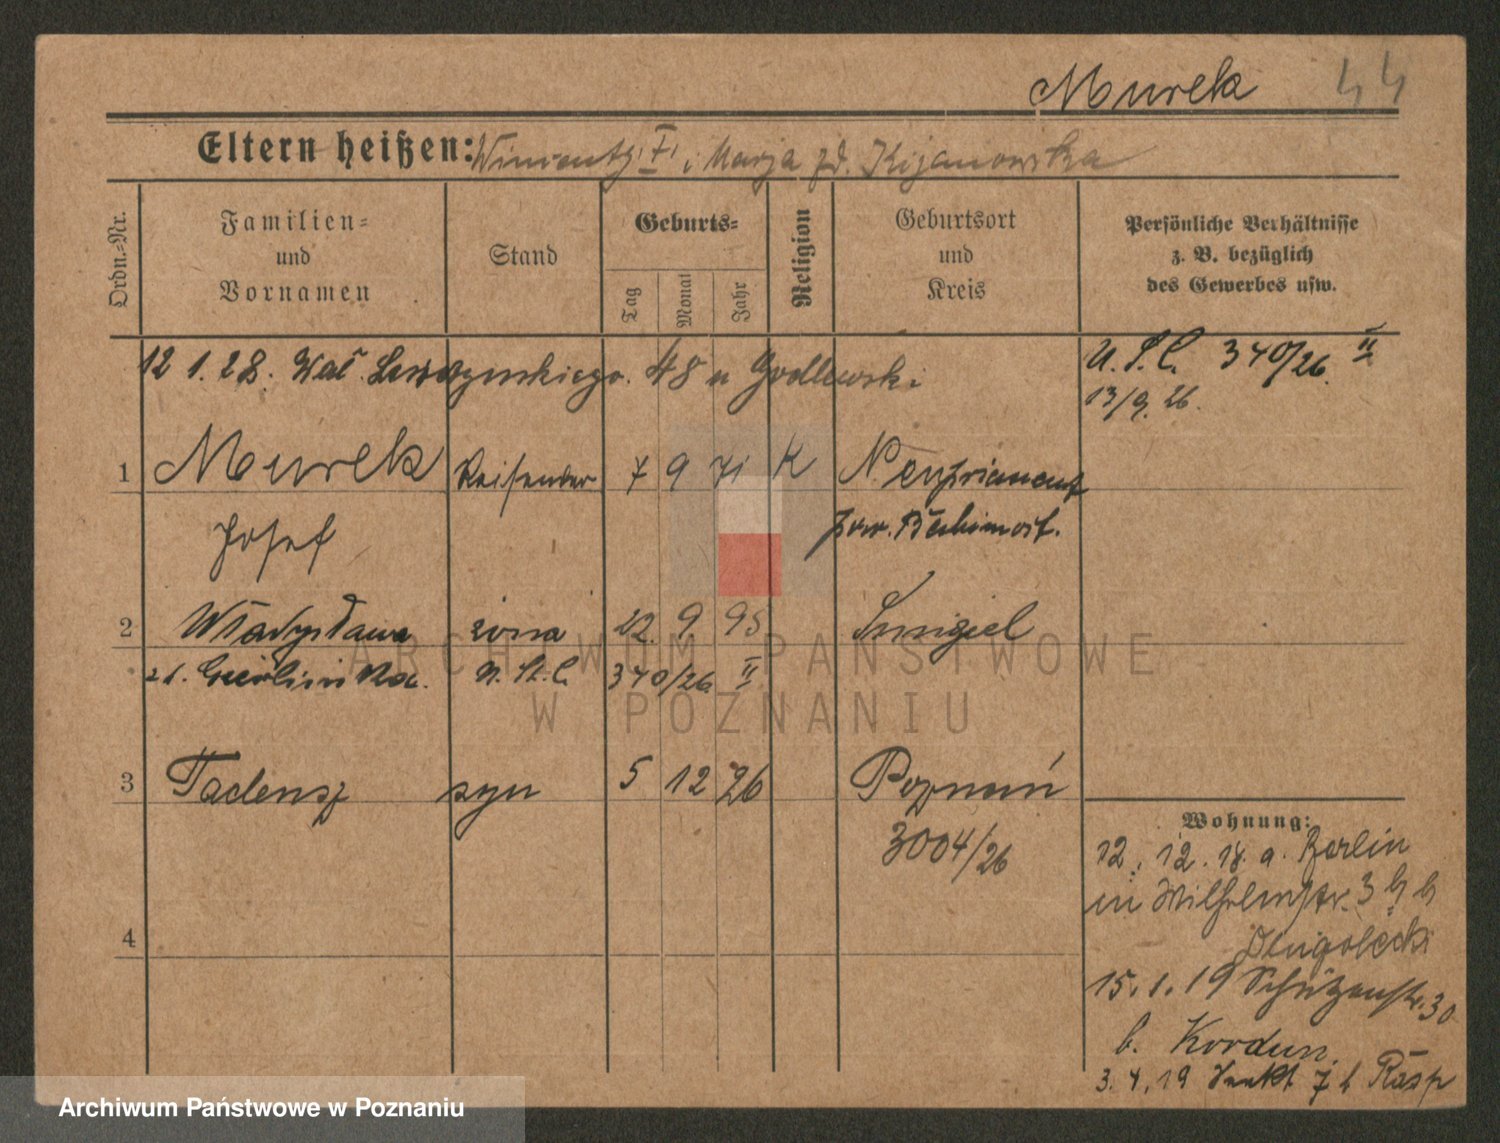 Murek 44
Eltern heißen: Wincenty i Marja zd. Kijanowska
Ordn.-Nr.
Familien-
und
Vornamen
Stand
Geburts-
Tag
Monat
Jahr
Religion
Geburtsort
und
Kreis
Persönliche Verhältnisse
z. B. bezüglich
des Gewerbes usw.
12 1. 28. Wał. 48 u Godlewski
U. S. C. 340/26. II
13/9. 26.
1 Murek Reisender 7 9 71 K
Josef pow. Babimost.
2 Władysława żona 22. 9 95 Smigiel
U. St. C. 340/26. II
3 Tadeusz syn 5 12 26 Poznań
3004/26
4
Wohnung:
12. 12. 18. a. Berlin
in Wilhelmstr. 3
15. 1. 19 Schützenstr. 30
b. Kordun.
3. 4. 19
ARCHIWUM PAŃSTWOWE
W POZNANIU
Archiwum Państwowe w Poznaniu